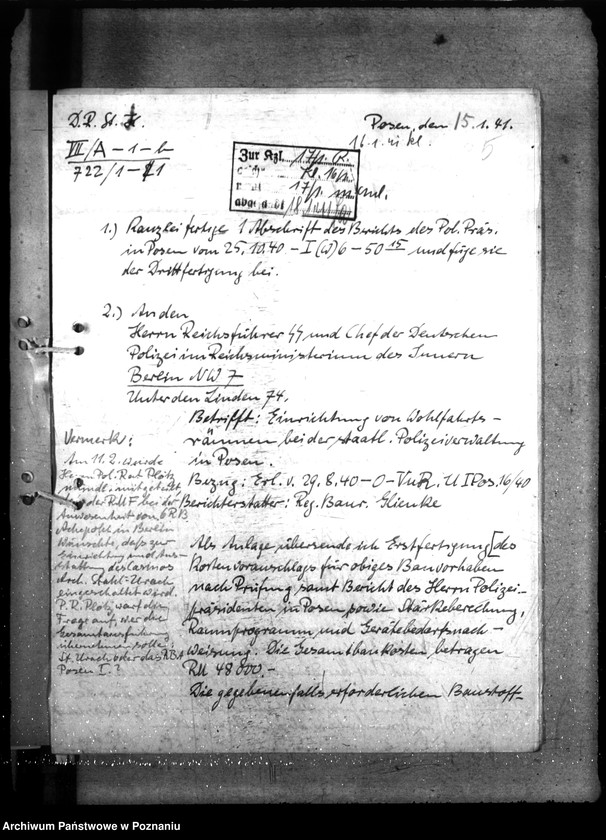 D.R. St. H.
Posen, den 15.1.41.
VII/A – 1 – b
722/1 – 11
16.1.41 kl.
5
Zur Kzl. 17/1. R.
Kl. 16/1.
17/1.
abgesandt 18.1.
1.) Kanzlei fertige 1 Abschrift des Berichts des Pol. Präs.
in Posen vom 25.10.40 – I (W) 6 – 50 15 und füge sie
der Drittfertigung bei.
2.) An den
Herrn Reichsführer SS und Chef der Deutschen
Polizei im Reichsministerium des Innern
Berlin NW 7
Unter den Linden 74.
Betrifft: Einrichtung von Wohlfahrts-
räumen bei der staatl. Polizeiverwaltung
in Posen.
Bezug: Erl. v. 29.8.40 – O – VuR. U I Pos. 16/40
Berichterstatter: Reg. Baur. Glienke
Als Anlage übersende ich Erstfertigung [des
Kostenvoranschlags für obiges Bauvorhaben
nach Prüfung samt Bericht des Herrn Polizei-
präsidenten in Posen sowie Stärkeberechnung,
Raumprogramm und Gerätebedarfsnach-
weisung. Die Gesamtbaukosten betragen
RM 48 800.-
Die gegebenenfalls erforderlichen Baustoff-
Vermerk:
Am 11.2. wurde
Herrn Pol. Rat Plötz
mündl. mitgeteilt
dass der RMF bei der
Anwesenheit von ORB
in Berlin
wünschte, dass zur
Einrichtung und Aus-
stattung des Casinos
Arch. Stahl-Urach
eingeschaltet würd.
P.R. Plötz warf die
Frage auf, wer die
Gesamtausführung
übernehmen solle,
St. Urach oder das ABA
Posen I.?
Archiwum Państwowe w Poznaniu